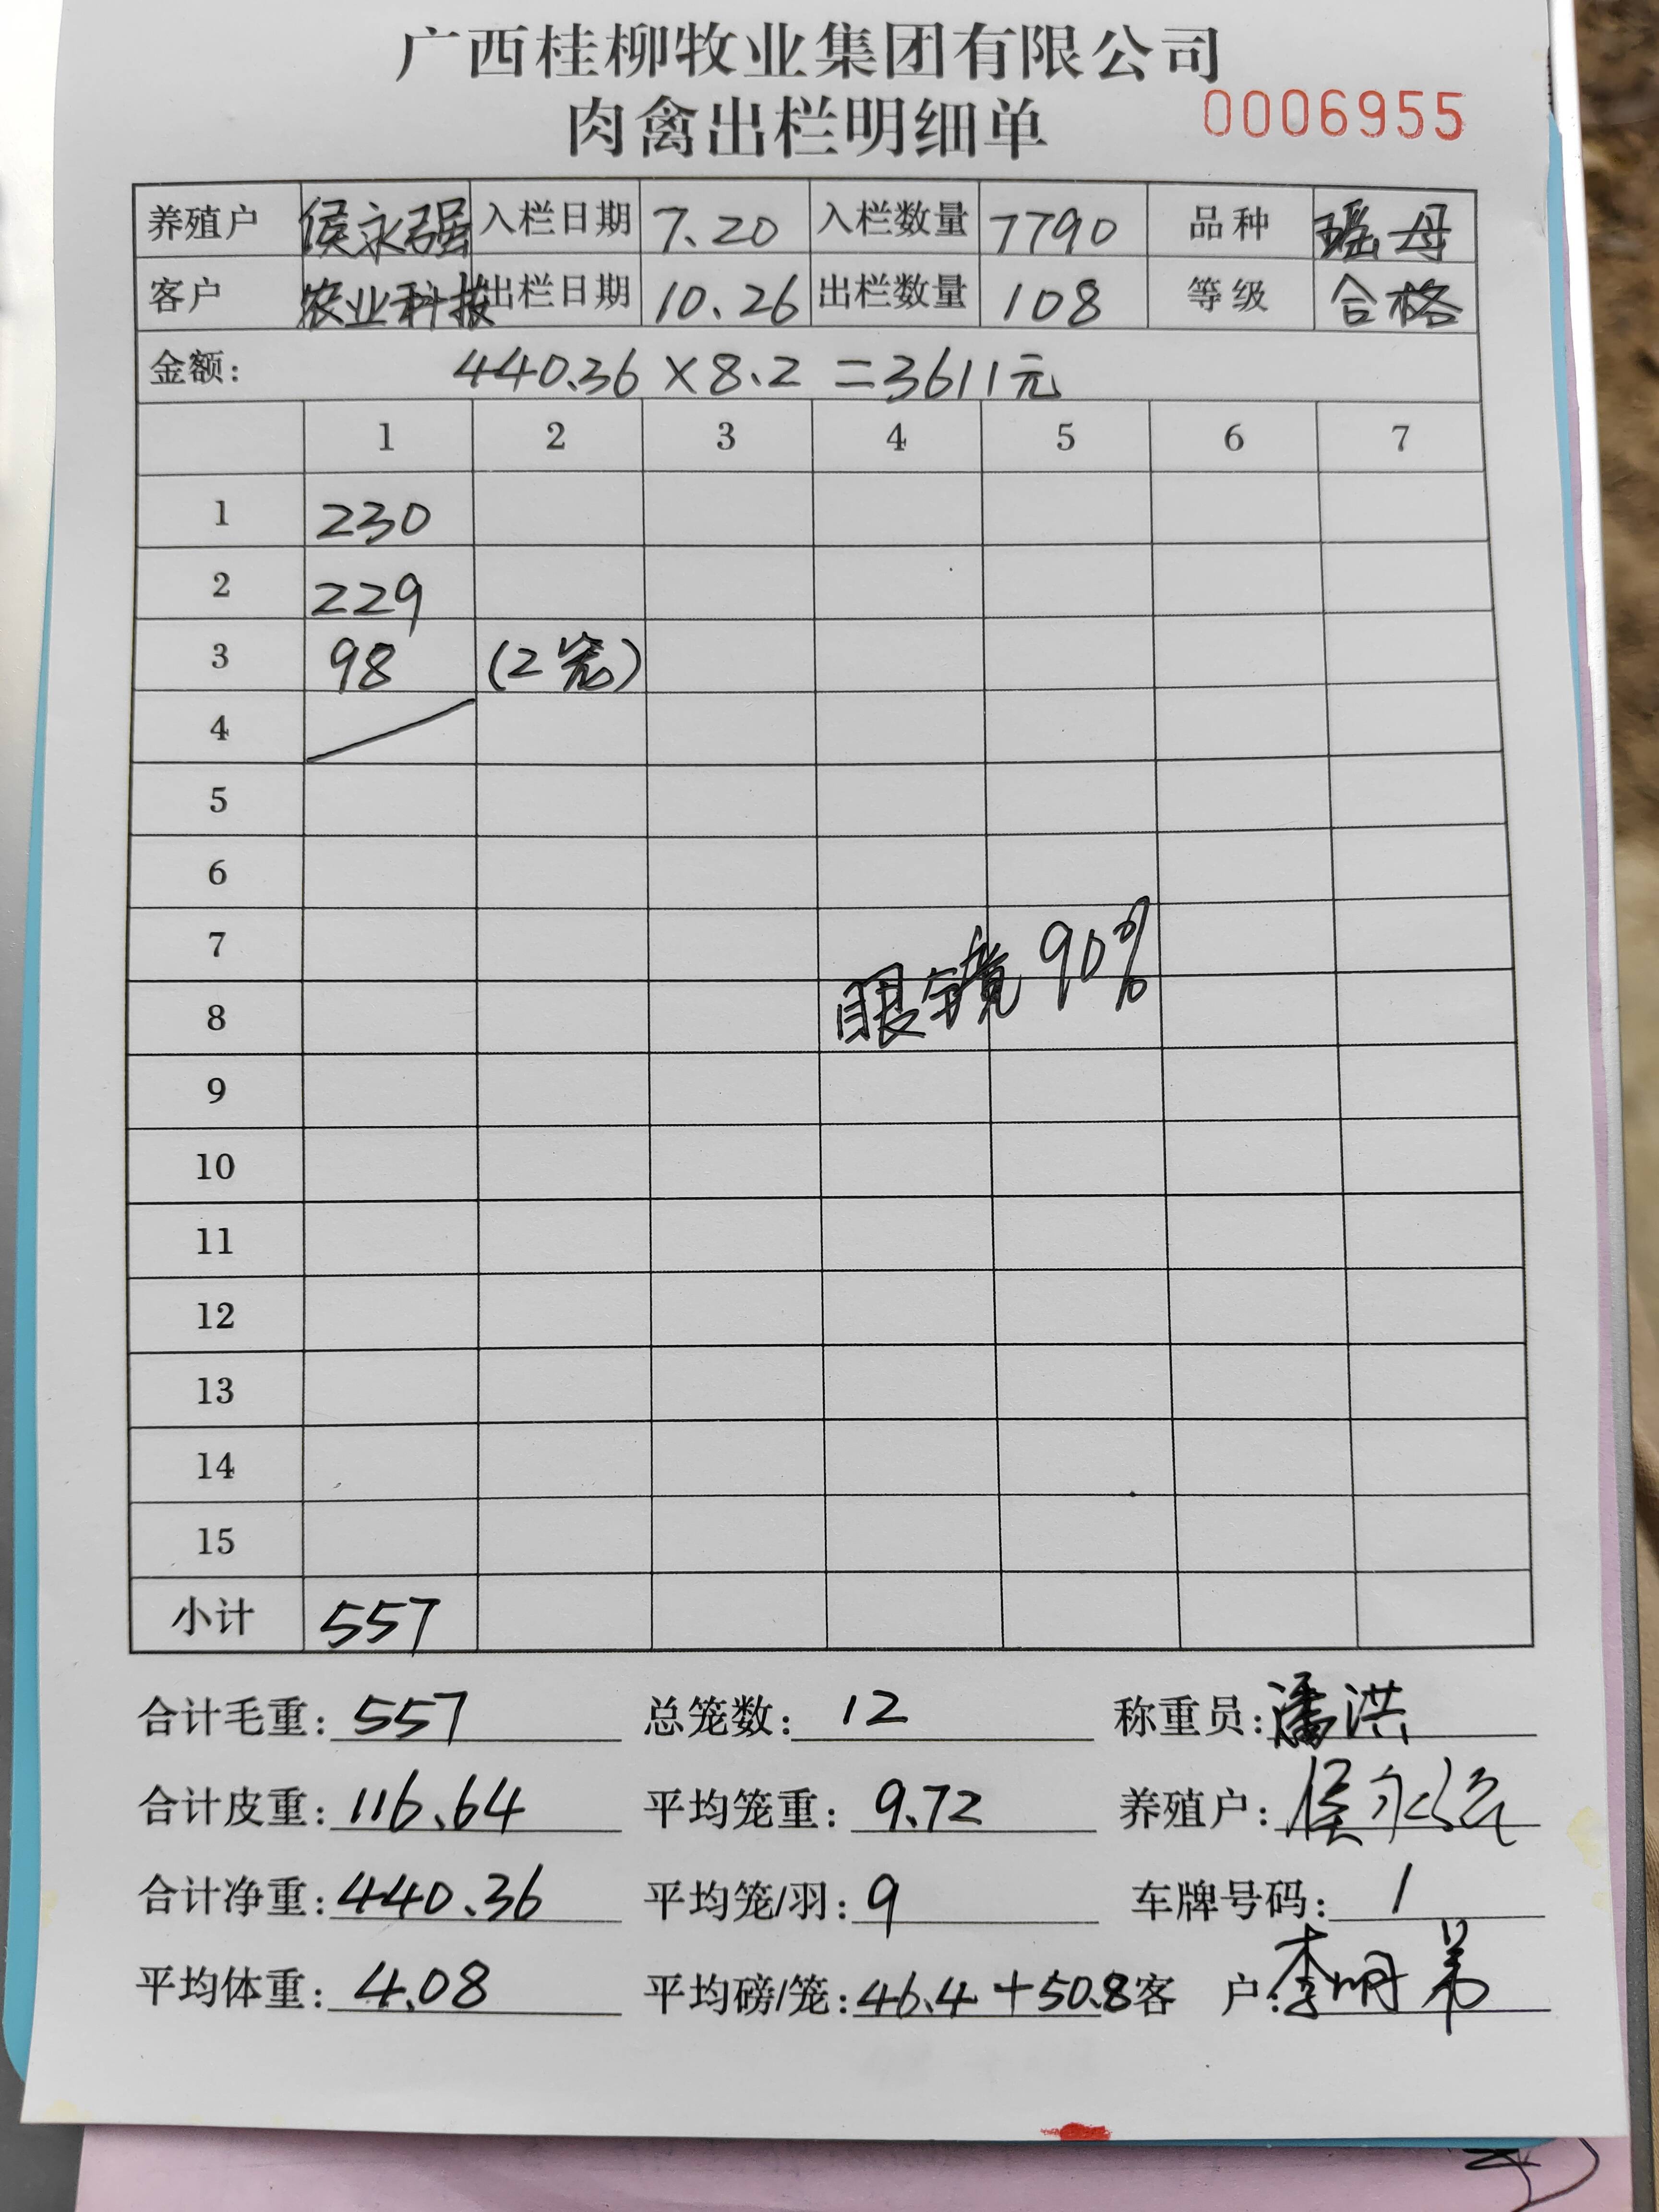 广西桂柳牧业集团有限公司
肉禽出栏明细单 0006955
养殖户 侯永强 入栏日期 7.20 入栏数量 7790 品种 瑶母
客户 农业科技 出栏日期 10.26 出栏数量 108 等级 合格
金额: 440.36×8.2=3611元
1 2 3 4 5 6 7
1 230
2 229
3 98 (2笼)
4
5
6
7
8
眼镜90%
9
10
11
12
13
14
15
小计 557
合计毛重: 557 总笼数: 12 称重员: 潘洪
合计皮重: 116.64 平均笼重: 9.72 养殖户: 侯永强
合计净重: 440.36 平均笼/羽: 9 车牌号码: 1
平均体重: 4.08 平均磅/笼: 46.4+50.8 客户: 李明